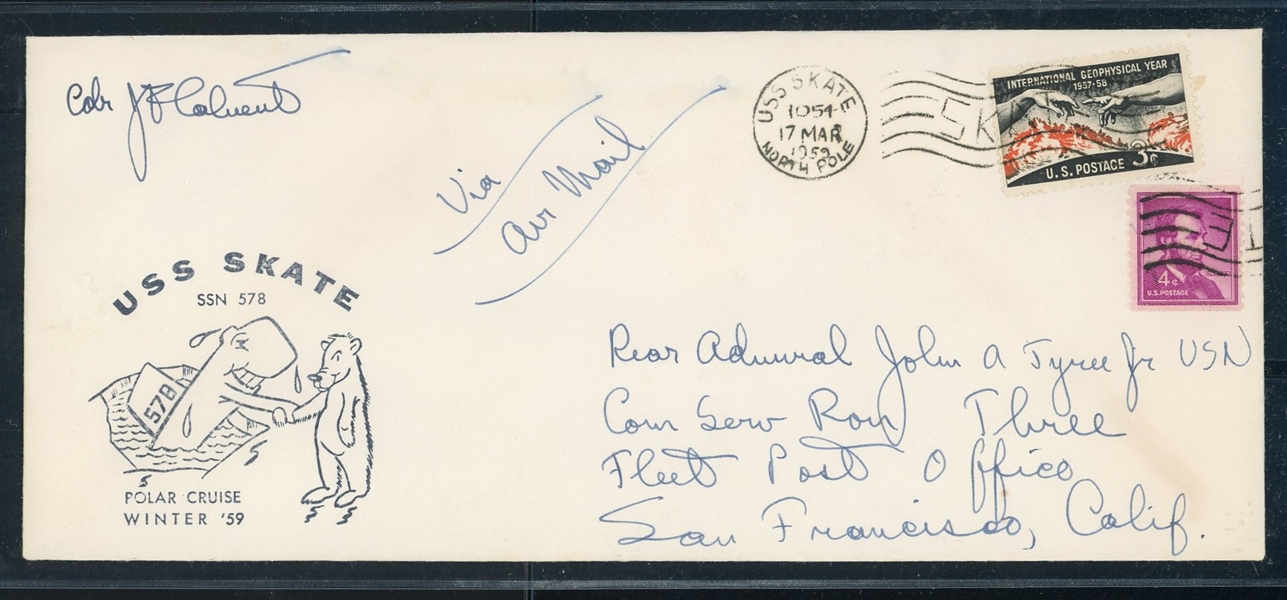 Cdr JF Calvert
Via
Air Mail
USS SKATE
1054
17 MAR
1959
NORTH POLE
INTERNATIONAL GEOPHYSICAL YEAR
1957-58
U.S. POSTAGE 3¢
4¢
U.S. POSTAGE
USS SKATE
SSN 578
578
POLAR CRUISE
WINTER '59
Rear Admiral John A Tyree Jr USN
Com Serv Ron Three
Fleet Post Office
San Francisco, Calif.